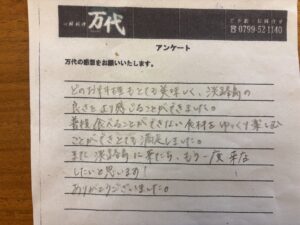 万代
ご予約・お問合せ
☎0799-52-1140
アンケート
万代の感想をお願いいたします。
どのお料理もとても美味しく、淡路島の
良さをより感じることができました。
普段食べることができない食材をゆっくり楽しむ
ことができとても満足しました。
また淡路島に来たら、もう一度来店
したいと思います!
ありがとうございました。